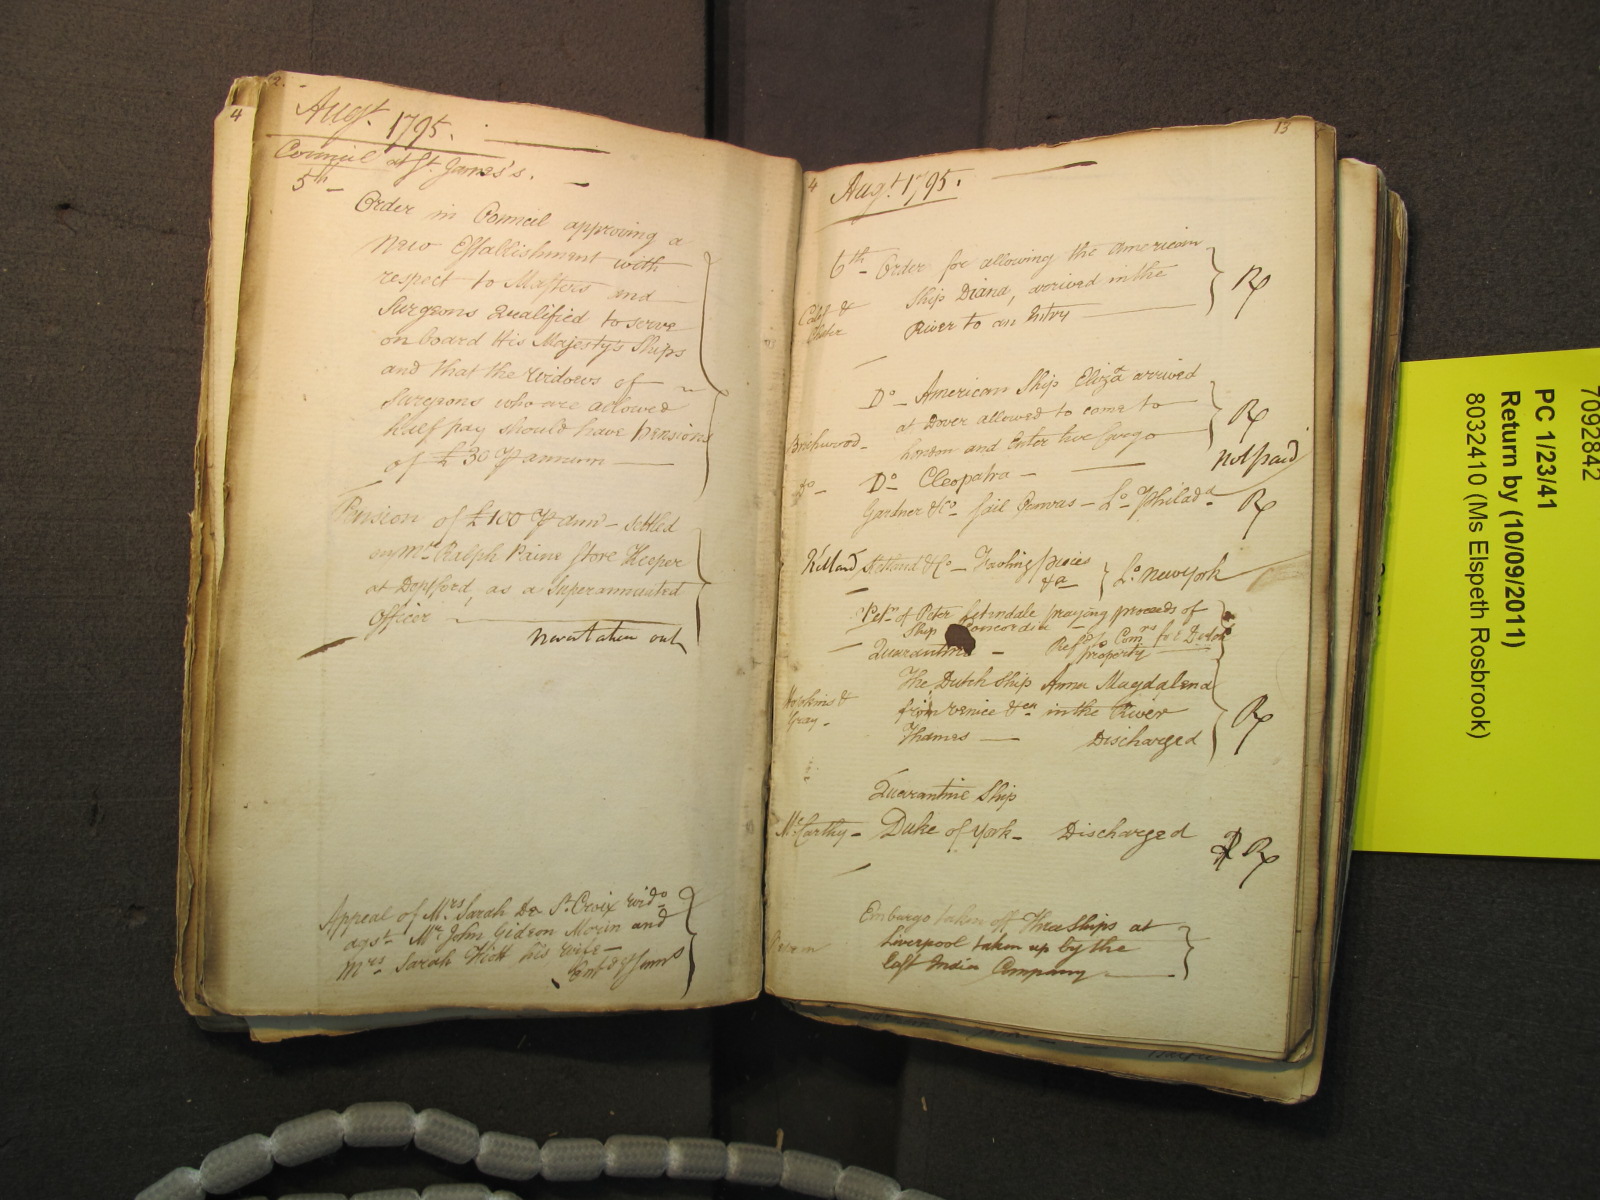 4
2.
Augt. 1795.
Council at St. James's.
5th
Order in Council approving a
New Establishment with
respect to Masters and
Surgeons qualified to serve
on board His Majesty's Ships
and that the Widows of
Surgeons who are allowed
half pay should have Pensions
of £30 P annum
Pension of £100 P Ann - settled
on Mr. Ralph Paine Store Keeper
at Deptford, as a Superannuated
Officer
Never taken out
Appeal of Mrs Sarah De St. Croix wido
agst. Mr John Gideon Morin and
Mrs Sarah his wife
13
4
Augt. 1795.
6th - Order for allowing the American
Ship Diana, arrived in the
River to an Entry
Rx
Do - American Ship Eliza arrived
at Dover allowed to come to
London and Enter her Cargo
Rx
Brickwood
Not paid
Do
Do Cleopatra
Gardner & Co Sail Canvas - Lo. Philada
Rx
& Co - Fowling pieces
&a
Lo New York
Petn of Peter praying proceeds of
Ship Concordia
Refd to Comrs for Dutch
property
Quarantine
The Dutch Ship Anna Magdalena
from Venice &ca in the River
Thames Discharged
Hopkins &
Gray
Rx
Quarantine Ship
McCarthy - Duke of York - Discharged
Rx
Embargo taken off Three Ships at
Liverpool taken up by the
East India Company
7092842
PC 1/23/41
Return by (10/09/2011)
8032410 (Ms Elspeth Rosbrook)